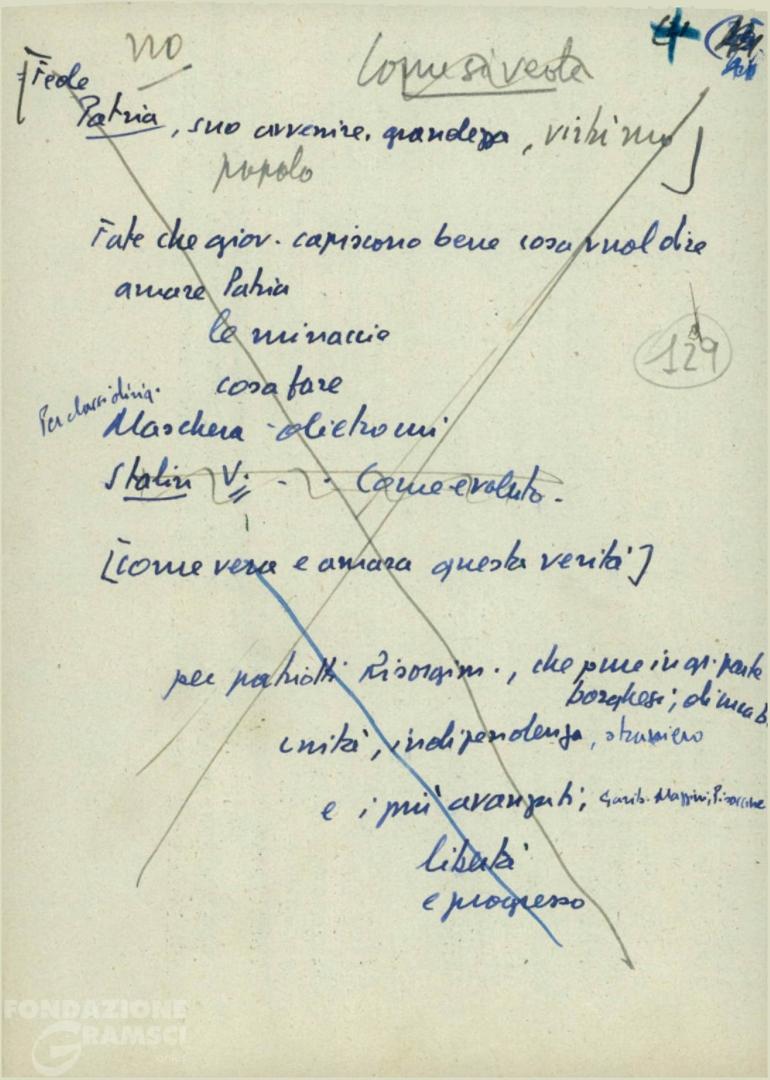 no
Come si vede
[Fede
Patria, suo avvenire, grandezza, virtù suo
popolo ]
Fate che giov. capiscono bene cosa vuol dire
amare Patria
le minaccie
cosa fare
Per classi dirig.
Maschera - dietro cui
Stalin V. - . Come evoluto.
[Come vera e amara questa verità]
129
per patriotti Risorgim., che pure in gr. parte
borghesi;
unità, indipendenza, straniero
e i più avanzati; Garib. Mazzini, Pisacane
libertà
e progresso
FONDAZIONE
GRAMSCI